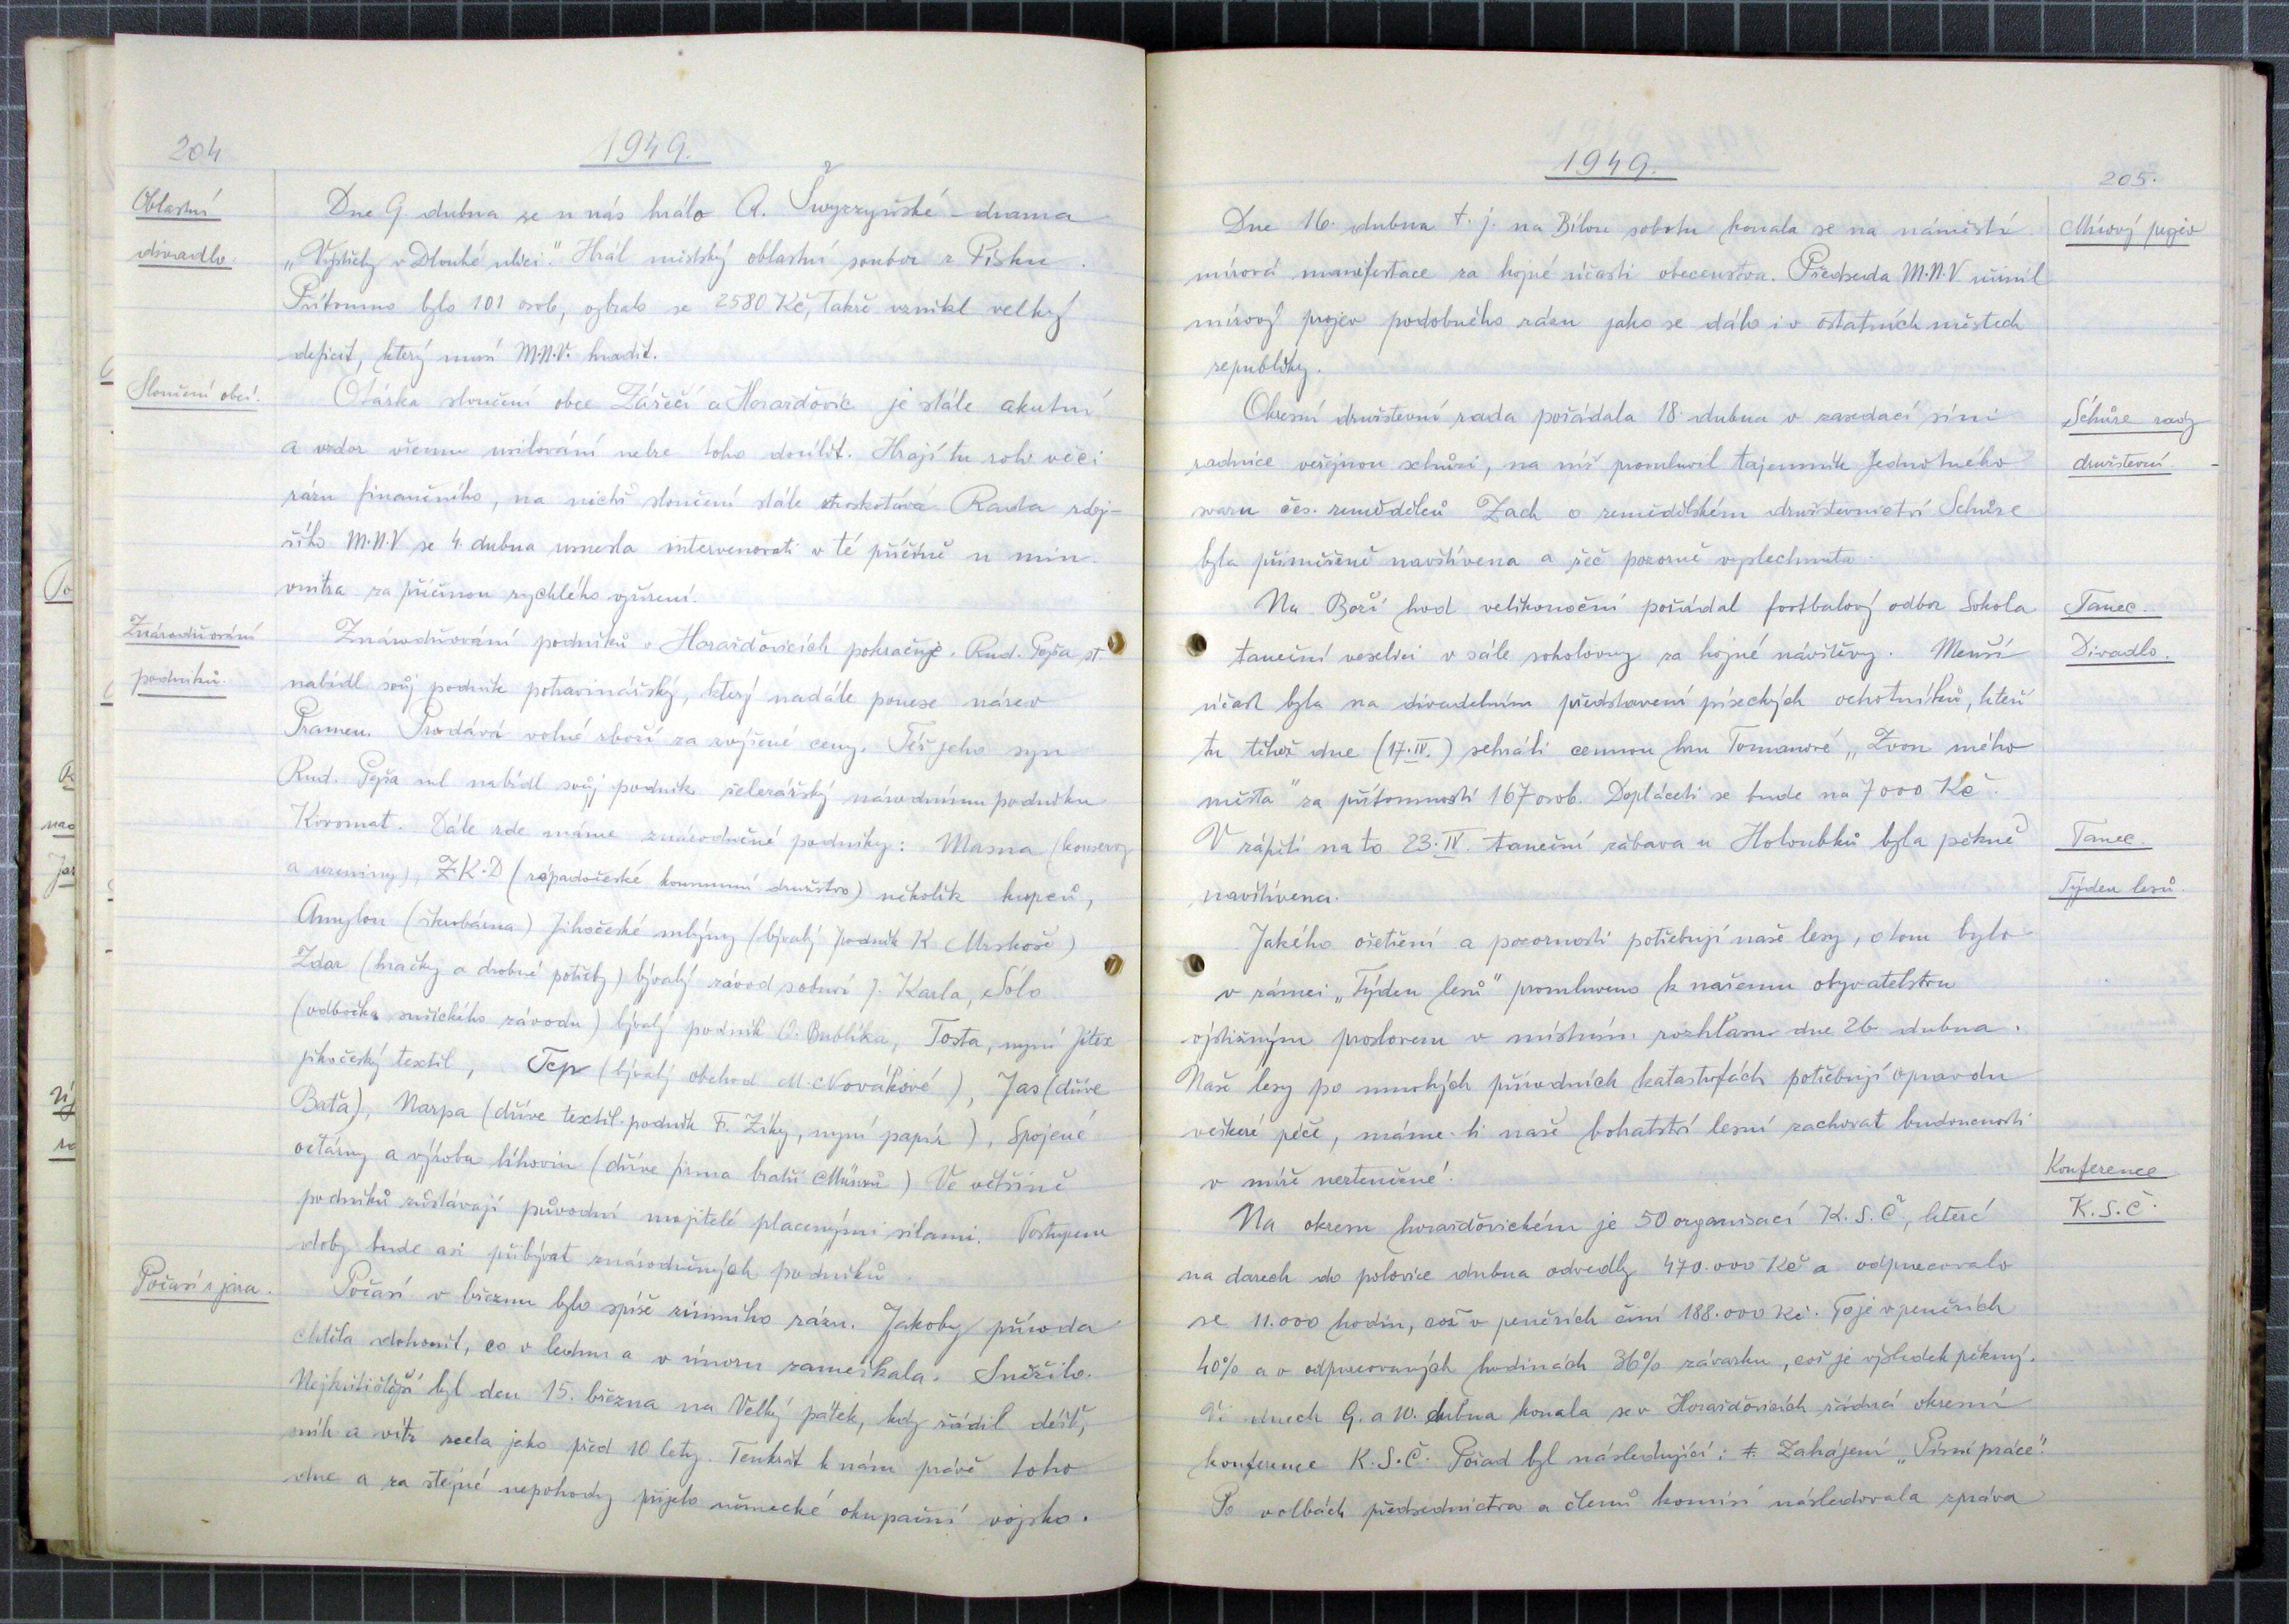 204
1949.
Oblastní
divadlo.
Dne 9. dubna se u nás hrálo A. Šwyrzyńské drama
„Výstřely v Dlouhé ulici". Hrál místský oblastní soubor z Písku.
Přítomno bylo 101 osob, vybralo se 2580 Kč, takže vznikl velký
deficit, který musí M.N.V. hradit.
Sloučení obcí.
Otázka sloučení obce Zářečí a Horažďovic je stále akutní
a vzdor všemu usilování nelze toho docílit. Hrají tu roli věci
rázu finančního, na nichž sloučení stále ztroskotává Rada zdej-
šího M.N.V se 4. dubna usnesla intervenovati v té příčině u min.
vnitra za příčinou rychlého vyřízení.
Znárodňování
podniků.
Znárodňování podniků v Horažďovicích pokračuje. Rud. Pepša st
nabídl svůj podnik potravinářský, který nadále ponese název
Pramen. Prodává volné zboží za zvýšené ceny. Též jeho syn
Rud. Pepša ml nabídl svůj podnik železářský národnímu podniku
Kovomat. Dále zde máme znárodněné podniky: Masna (konservy
a uzeniny), Z.K.D (západočeské konsumní družstvo) několik kupců,
Amylon (škrobárna) Jihočeské mlýny (bývalý podnik K. Mrskoše)
Zdar (hračky a drobné potřeby) bývalý závod s obuví J. Karla, Solo
(odbočka sušického závodu) bývalý podnik O. Bublíka, Tosta, nyní Jitex
jihočeský textil, Tep (bývalý obchod M. Novákové), Jas (dříve
Baťa), Narpa (dříve textil. podnik F. Zíky, nyní papír), Spojené
octárny a výroba lihovin (dříve firma bratří Münzů) Ve většině
podniků zůstávají původní majitelé placenými silami. Postupem
doby bude asi přibývat znárodněných podniků.
Počasí z jara.
Počasí v březnu bylo spíše zimního rázu. Jakoby příroda
chtěla dohonit, co v lednu a v únoru zameškala. Sněžilo.
Nejkritičtější byl den 15. března na Velký pátek, kdy řádil déšť,
sníh a vítr zcela jako před 10 lety. Tenkrát k nám právě toho
dne a za stejné nepohody přijelo německé okupační vojsko.
1949.
205.
Dne 16. dubna t. j. na Bílou sobotu konala se na náměstí
mírová manifestace za hojné účasti obecenstva. Předseda M.N.V učinil
mírový projev podobného rázu jako se dálo i v ostatních městech
republiky.
Mírový projev
Okresní družstevní rada pořádala 18. dubna v zasedací síni
radnice veřejnou schůzi, na níž promluvil tajemník Jednotného
svazu čes. zemědělců Zach o zemědělském družstevnictví Schůze
byla přiměřeně navštívena a řeč pozorně vyslechnuta.
Schůze rady
družstevní.
Na Boží hod velikonoční pořádal footbalový odbor Sokola
taneční veselici v sále sokolovny za hojné návštěvy. Menší
účast byla na divadelním představení píseckých ochotníků, kteří
tu téhož dne (17.IV.) sehráli cennou hru Tomanové „Zvon mého
města" za přítomnosti 167 osob. Dopláceti se bude na 7000 Kč.
V zápětí na to 23.IV. taneční zábava u Holoubků byla pěkně
navštívena.
Tanec.
Divadlo.
Tanec.
Týden lesů.
Jakého ošetření a pozornosti potřebují naše lesy, o tom bylo
v rámci „Týden lesů" promluveno k našemu obyvatelstvu
výstižným proslovem v místním rozhlasu dne 26 dubna.
Naše lesy po mnohých přírodních katastrofách potřebují opravdu
veškeré péče, máme-li naše bohatství lesní zachovat budoucnosti
v míře neztenčené!
Konference
K.S.Č.
Na okresu horažďovickém je 50 organisací K.S.Č, které
na darech do polovice dubna odvedly 470.000 Kč a odpracovalo
se 11.000 hodin, což v penězích činí 188.000 Kč. To je v penězích
40% a v odpracovaných hodinách 36% závazku, což je výsledek pěkný.
Ve dnech 9. a 10. dubna konala se v Horažďovicích řádná okresní
konference K.S.Č. Pořad byl následující: Zahájení „Písní práce".
Po volbách předsednictva a členů komisí následovala zpráva